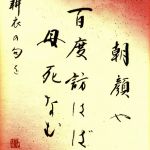 朝顔や
百度訪はば
母死なむ
耕衣の句を